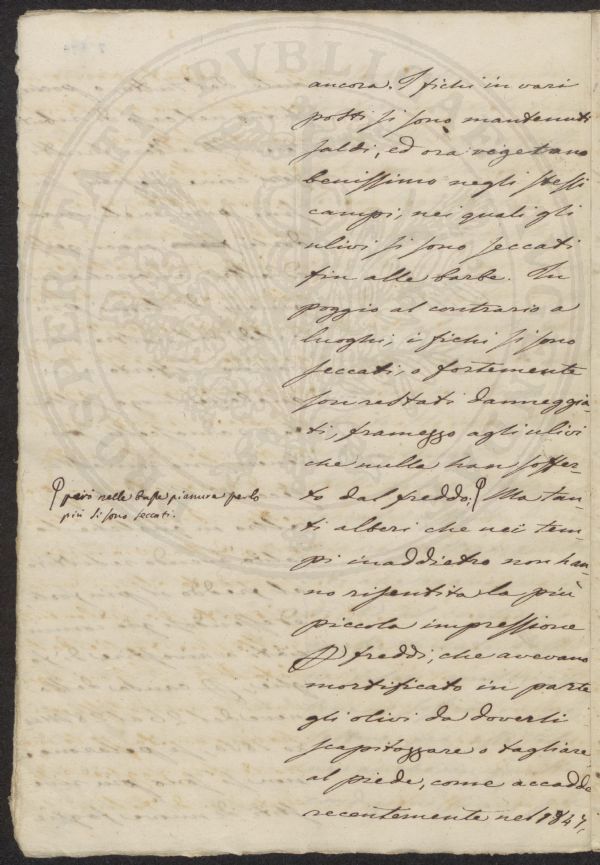 ancora. I fichi in vari
posti si sono mantenuti
saldi, ed ora vegetano
benissimo negli stessi
campi, nei quali gli
ulivi si sono seccati
fin alle barbe. In
poggio al contrario a
luoghi, i fichi si sono
seccati, o fortemente
son restati danneggia-
ti, framezzo agli ulivi
che nulla han soffer-
to dal freddo; Ma tan-
ti alberi che nei tem-
pi inaddietro non han-
no risentita la più
piccola impressione
freddi, che avevano
mortificato in parte
gli olivi da doverli
scapitozzare o tagliare
al piede, come accadde
recentemente nel 1847,
però nelle basse pianure per lo
più si sono seccati.